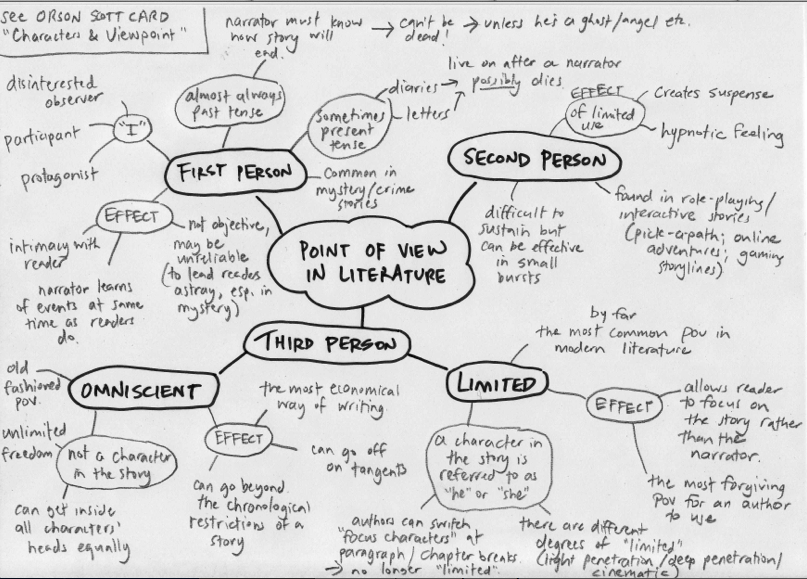 see ORSON SCOTT CARD
"Characters & Viewpoint"
narrator must know
how story will
end.
→ can't be
dead!
→ unless he's a ghost/angel etc.
live on after a narrator
possibly dies
disinterested
observer
participant
protagonist
"I"
almost always
past tense
sometimes
present
tense
diaries →
letters
FIRST PERSON
Common in
mystery/crime
stories
EFFECT
intimacy with
reader
narrator learns
of events at same
time as readers
do.
not objective,
may be
unreliable
(to lead readers
astray, esp. in
mystery)
EFFECT
of limited
use
Creates suspense
hypnotic feeling
SECOND PERSON
difficult to
sustain but
can be effective
in small
bursts
found in role-playing/
interactive stories
(pick-a-path; online
adventures; gaming
storylines)
POINT OF VIEW
IN LITERATURE
THIRD PERSON
OMNISCIENT
old
fashioned
pov.
unlimited
freedom
not a character
in the story
can get inside
all characters'
heads equally
EFFECT
the most economical
way of writing
can go off
on tangents
can go beyond
the chronological
restrictions of a
story
LIMITED
by far
the most common pov in
modern literature
EFFECT
allows reader
to focus on
the story rather
than the
narrator.
the most forgiving
pov for an author
to use
a character in
the story is
referred to as
"he" or "she"
authors can switch
"focus characters" at
paragraph/chapter breaks.
→ no longer "limited".
there are different
degrees of "limited"
(light penetration/deep penetration/
cinematic)